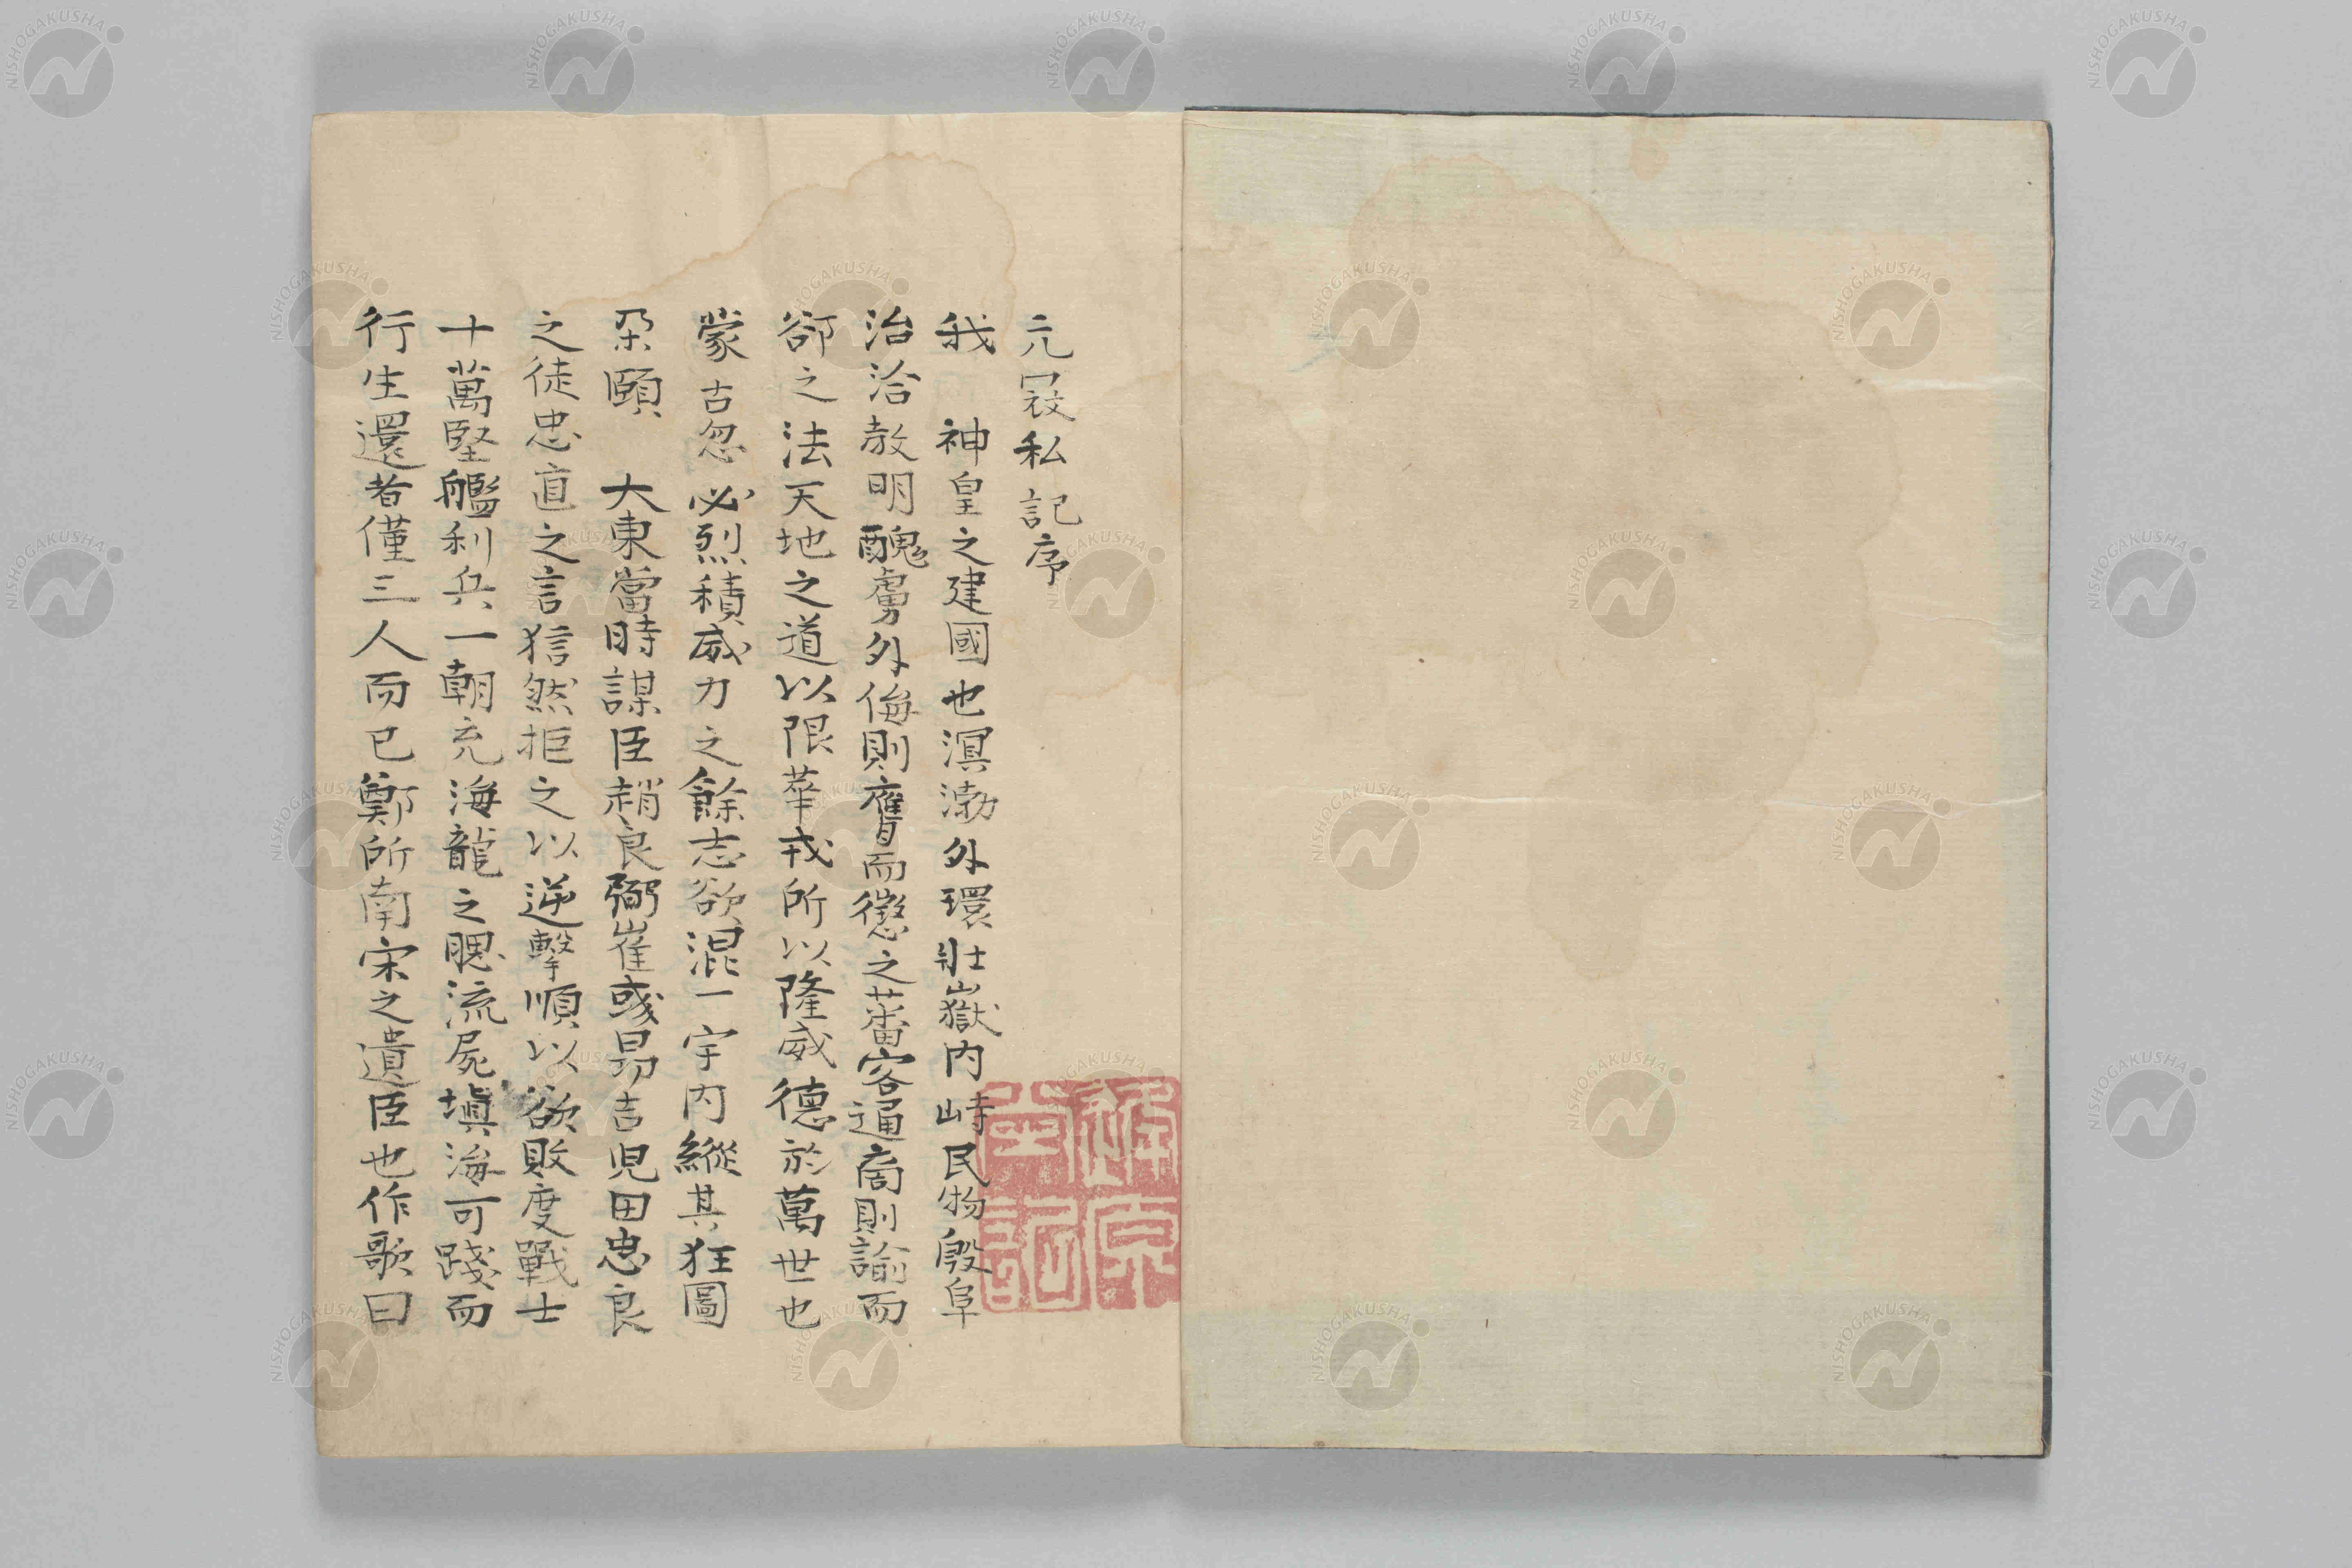 元冦私記序
我　神皇之建國也溟渤外環壯嶽内峙民物殷阜
治洽教明醜虜外侮則膺而懲之蕃客逼商則諭而
郤之法天地之道以限華戎所以隆威德於萬世也
蒙古忽必烈積威力之餘志欲混一宇内縱其狂圖
朶頤　大東當時謀臣趙良弼崔彧昻吉児田忠良
之徒忠直之言狺然拒之以逆擊順以欲敗度戰士
十萬堅艦利兵一朝充海龍之腮流屍塡海可踐而
行生還者僅三人而已鄭所南宋之遺臣也作歌曰
NISHOGAKUSHA